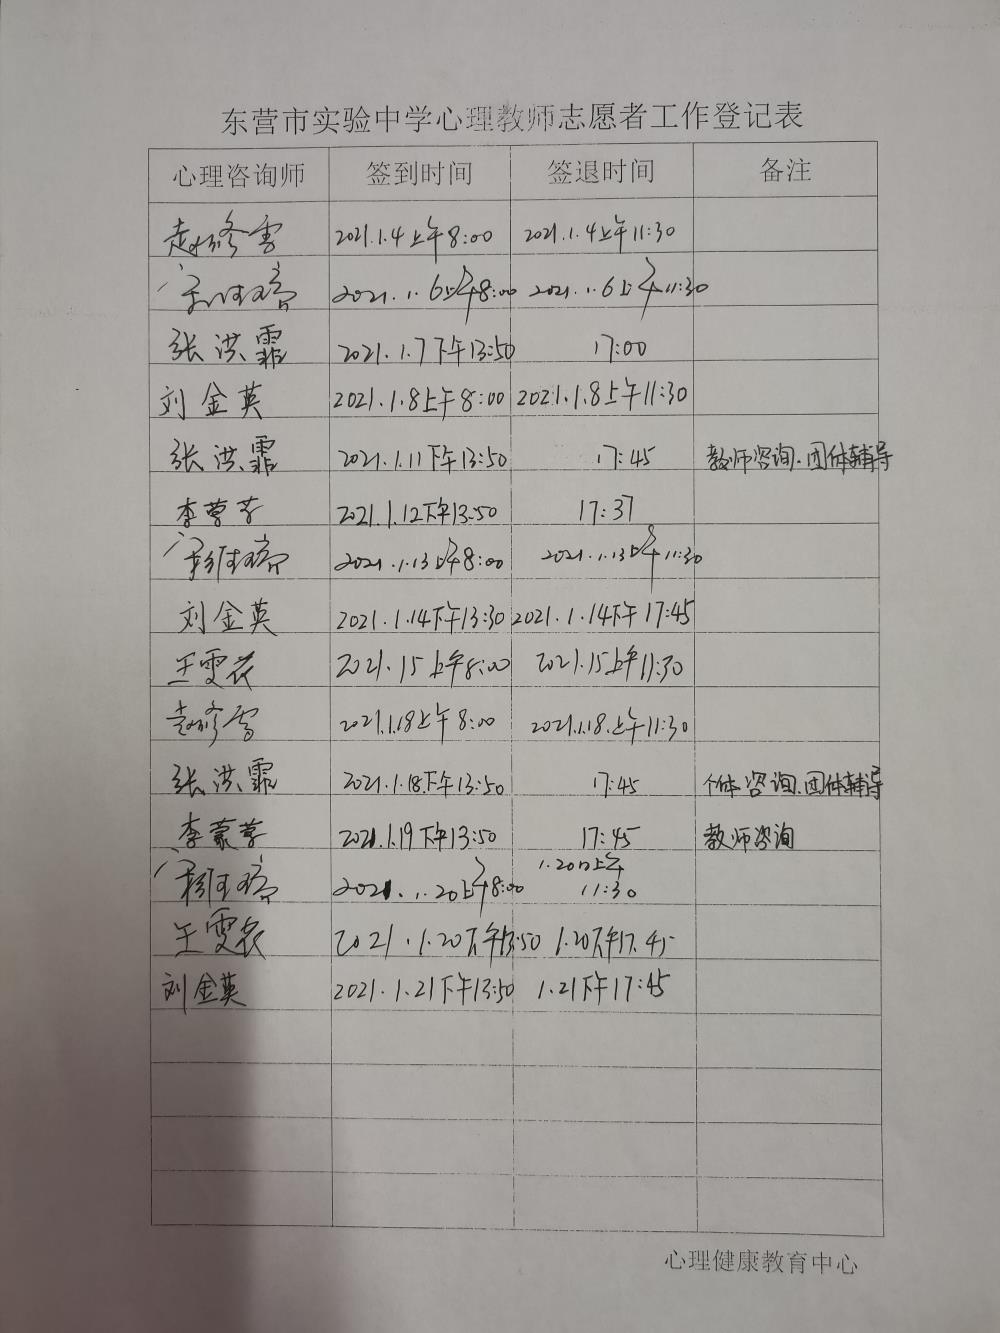 东营市实验中学心理教师志愿者工作登记表
心理咨询师 签到时间 签退时间 备注
赵修雪 2021.1.4上午8:00 2021.1.4上午11:30
2021.1.6上午8:00 2021.1.6上午11:30
张洪霏 2021.1.7下午13:50 17:00
刘金英 2021.1.8上午8:00 2021.1.8上午11:30
张洪霏 2021.1.11下午13:50 17:45 教师咨询.团体辅导
李蒙 2021.1.12下午13:50 17:37
2021.1.13上午8:00 2021.1.13上午11:30
刘金英 2021.1.14下午13:30 2021.1.14下午17:45
王雯 2021.15上午8:00 2021.15上午11:30
赵修雪 2021.1.18上午8:00 2021.1.18.上午11:30
张洪霏 2021.1.18.下午13:50 17:45 个体咨询.团体辅导
李蒙 2021.1.19下午13:50 17:45 教师咨询
2021.1.20上午8:00 1.20日上午11:30
王雯 2021.1.20下午13:50 1.20下午17.45
刘金英 2021.1.21下午13:50 1.21下午17:45
心理健康教育中心